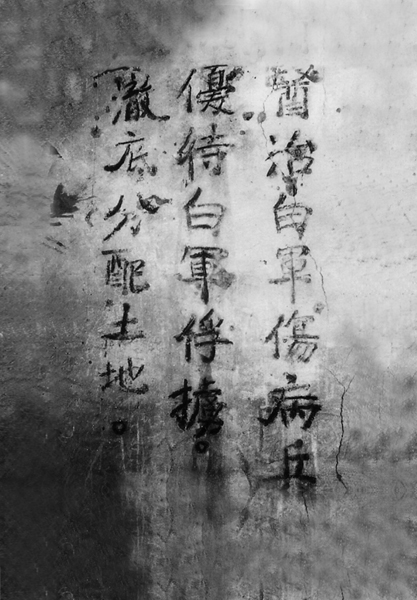 醫治白軍傷病兵
優待白軍俘擄。
澈底分配土地。